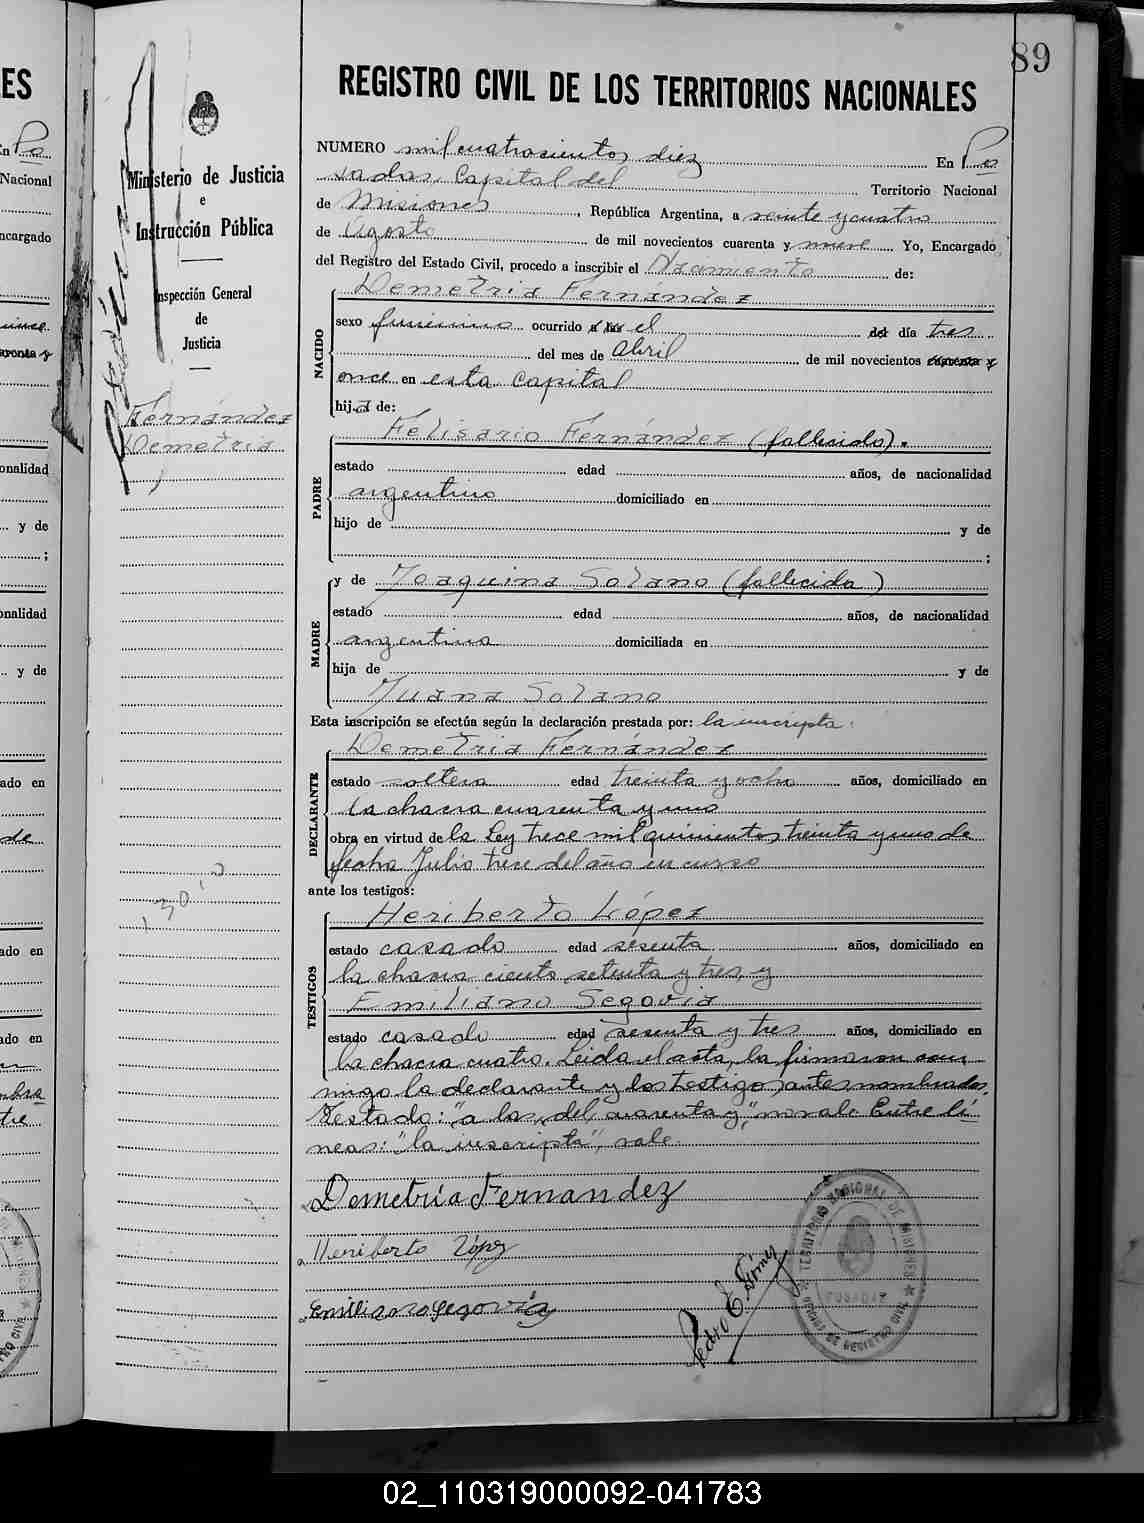 89
REGISTRO CIVIL DE LOS TERRITORIOS NACIONALES
Ministerio de Justicia
e
Instrucción Pública
Inspección General
de
Justicia
Fernández
Demetria
NUMERO mil cuatrocientos diez En Po
sadas, Capital del Territorio Nacional
de Misiones, República Argentina, a veinte y cuatro
de Agosto de mil novecientos cuarenta y nueve Yo, Encargado
del Registro del Estado Civil, procedo a inscribir el Nacimiento de:
NACIDO
Demetria Fernández
sexo femenino ocurrido a las el del día tres
del mes de Abril de mil novecientos cuarenta y
once en esta Capital
hija de:
PADRE
Felisario Fernández (fallecido).
estado edad años, de nacionalidad
argentino domiciliado en
hijo de y de
;
MADRE
y de Joaquina Solano (fallecida)
estado edad años, de nacionalidad
argentina domiciliada en
hija de y de
Juana Solano
Esta inscripción se efectúa según la declaración prestada por: la inscripta.
DECLARANTE
Demetria Fernández
estado soltera edad treinta y ocho años, domiciliado en
la chacra cuarenta y uno
obra en virtud de la Ley trece mil quinientos treinta y uno de
fecha Julio trece del año en curso
ante los testigos:
TESTIGOS
Heriberto López
estado casado edad sesenta años, domiciliado en
la chacra ciento setenta y tres, y
Emiliano Segovia
estado casado edad sesenta y tres años, domiciliado en
la chacra cuatro. Leida el acta, la firmaron con
migo la declarante y los testigos antes nombrados.
Testado: "a las, del, cuarenta y," no vale. Entre lí
neas: "la inscripta", vale.
Demetria Fernandez
Heriberto López
Emiliano Segovia
Pedro E. Gómez
TERRITORIO NACIONAL DE MISIONES
POSADAS
OFICINA DE REGISTRO CIVIL
02_110319000092-041783